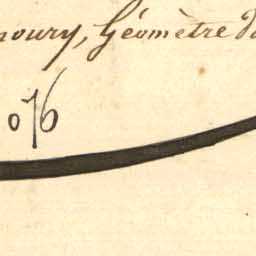 noury, Géomètre d
076